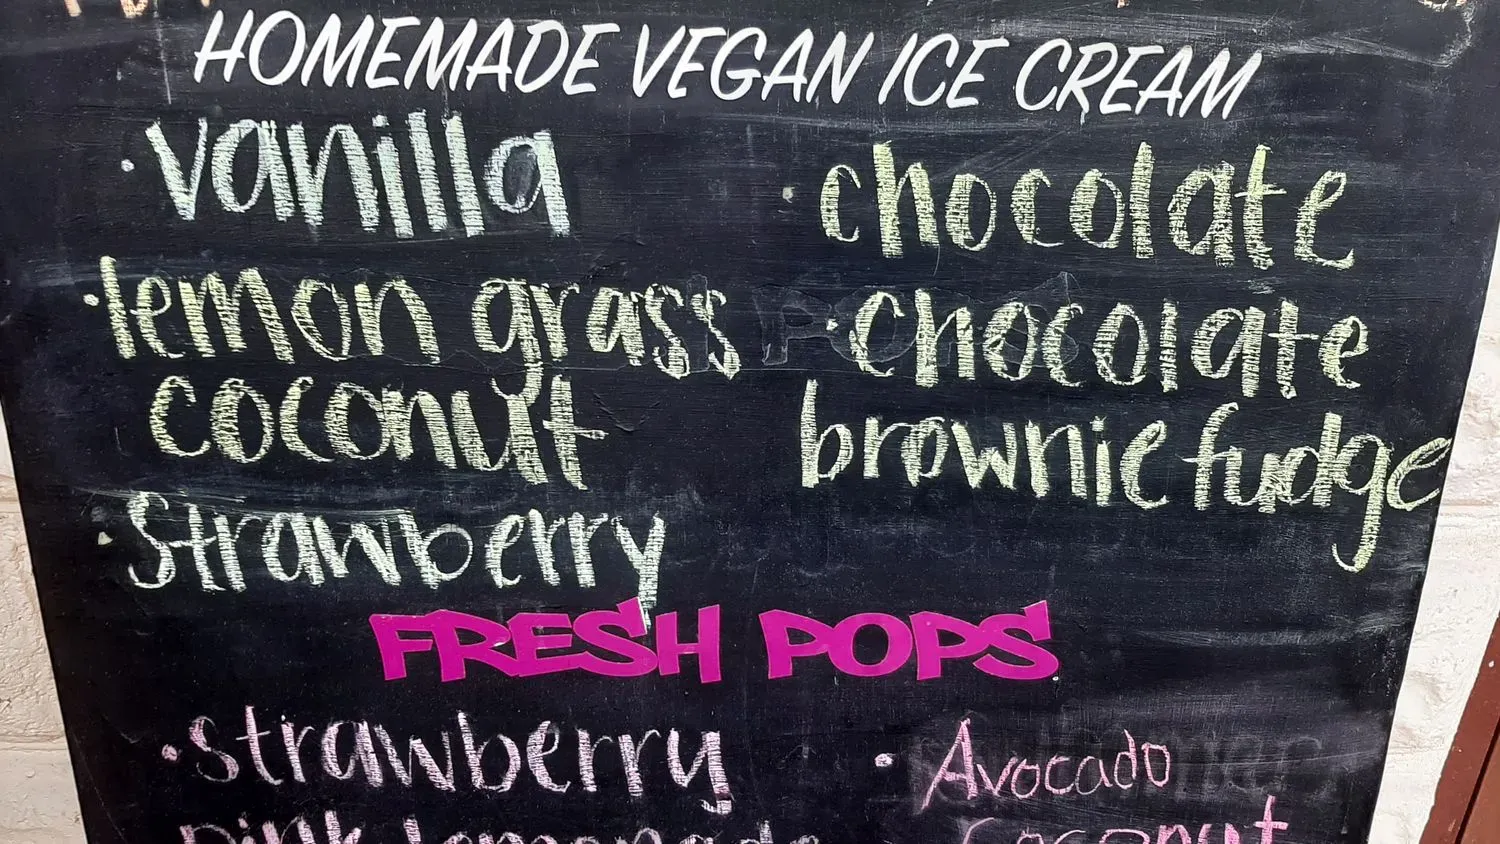 HOMEMADE VEGAN ICE CREAM
• vanilla
• lemon grass
coconut
• strawberry
• chocolate
• chocolate
brownie fudge
FRESH POPS
• strawberry
pink lemonade
• Avocado
Coconut